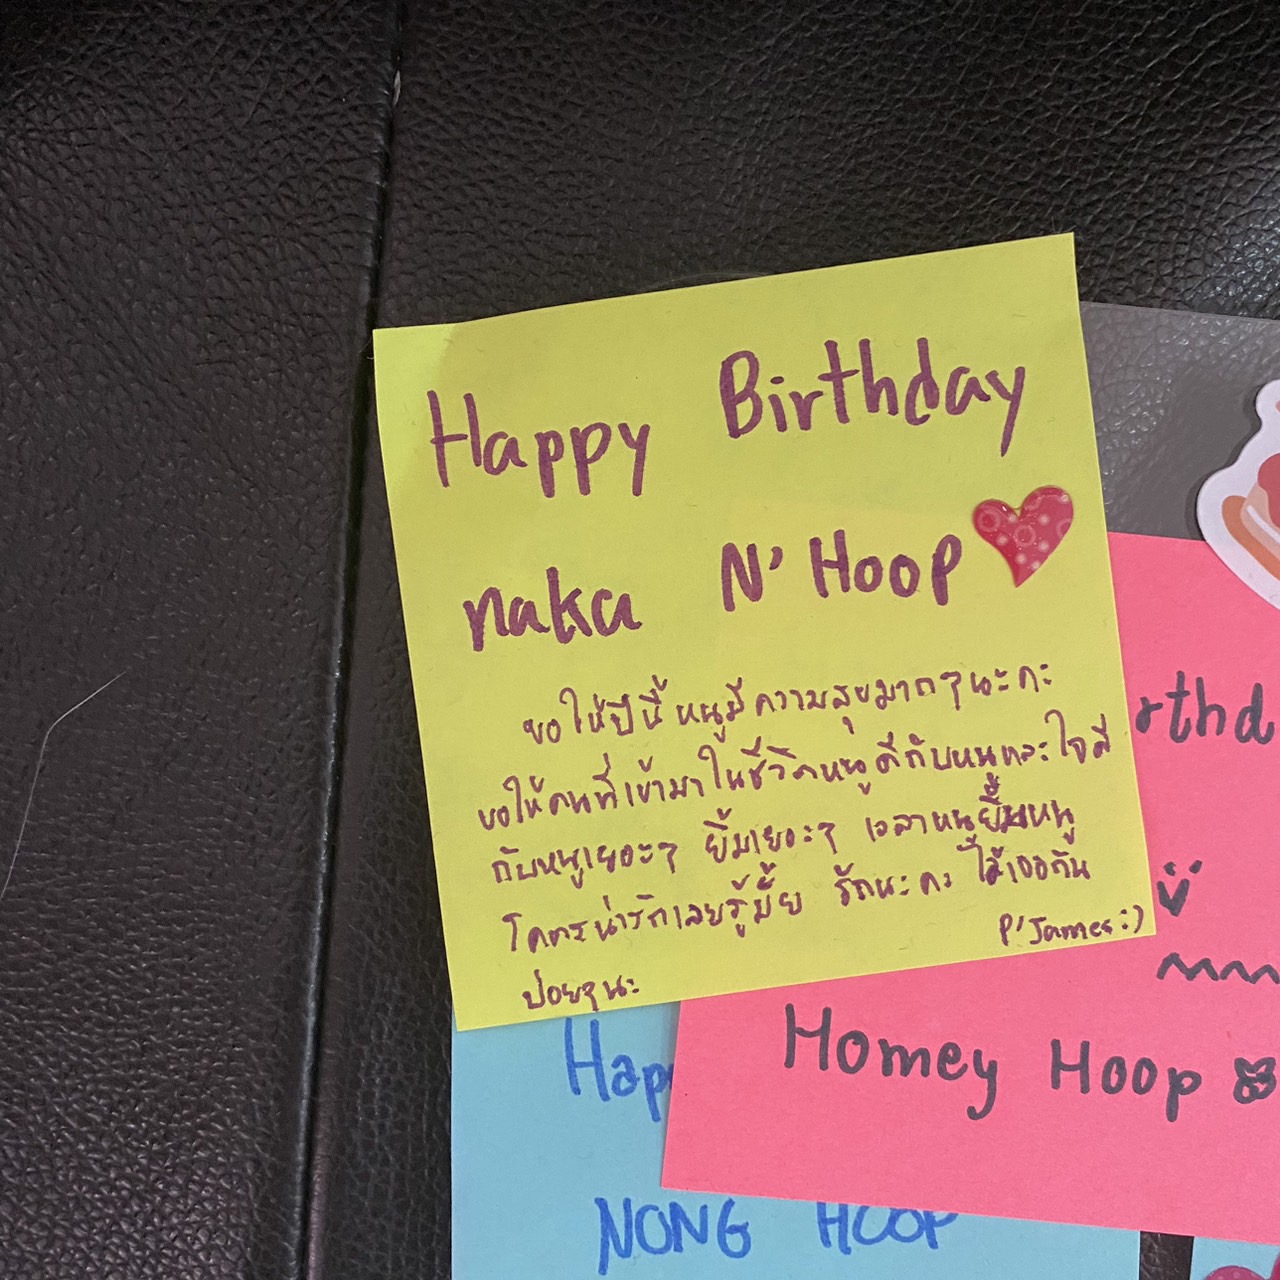 Happy Birthday
naka N' Hoop
ขอให้ปีนี้ หนูมีความสุขมาก ๆ นะคะ
ขอให้คนที่เข้ามาในชีวิตหนูดีกับหนูและใจดี
กับหนูเยอะๆ ยิ้มเยอะๆ เวลาหนูยิ้มหนู
โคตรน่ารักเลยรู้มั้ย รักนะคะ ได้เจอกัน
บ่อยๆนะ
P'James :)
rthd
Homey Hoop
Hap
NONG HOOP